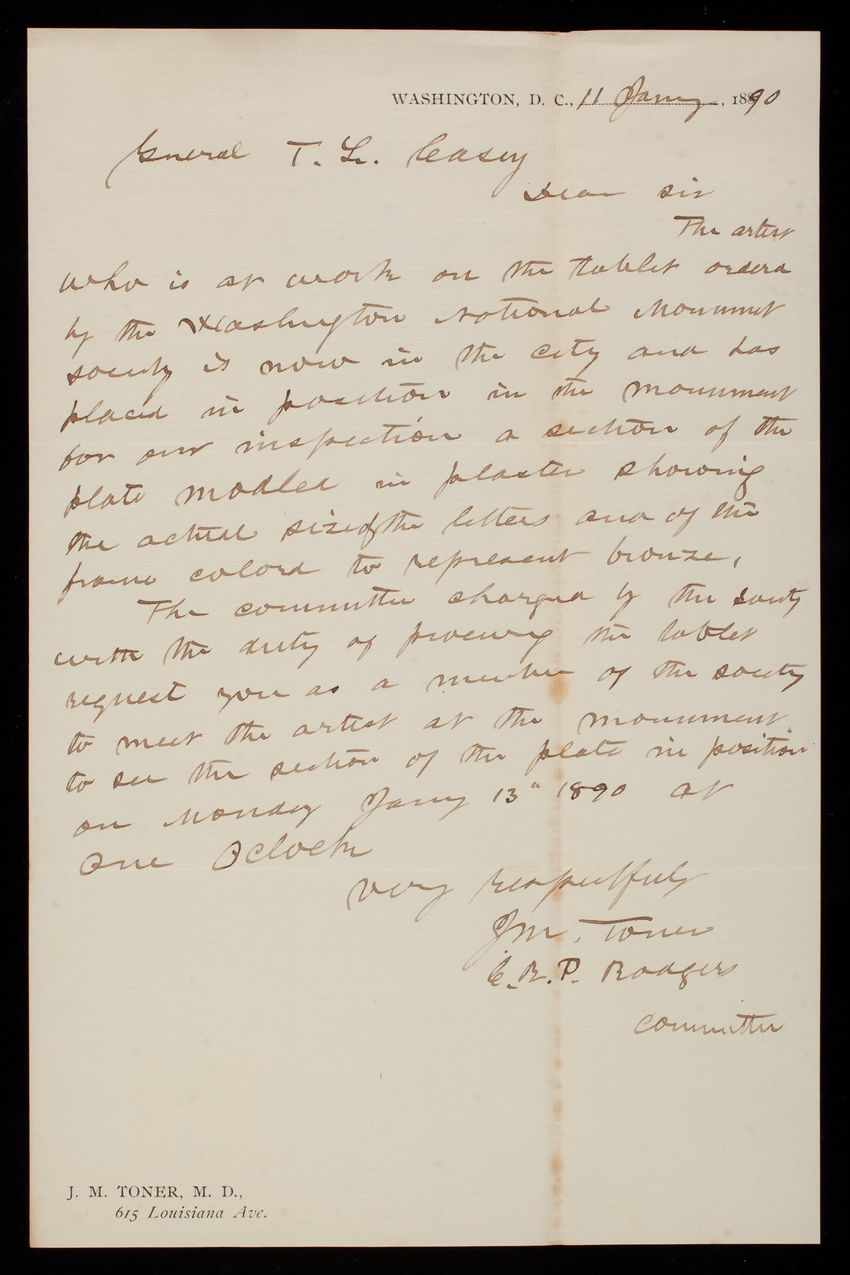 WASHINGTON, D. C., 11 Jany, 1890
General T. L. Casey
Dear sir
The artist
who is at work on the tablet orderd
by the Washington National Monument
society is now in the city and has
placed in position in the monument
for our inspection a section of the
plate modled in plaster showing
the actual size of the letters and of the
frame colord to represent bronze,
The committee charged by the society
with the duty of procuring the tablet
request you as a member of the society
to meet the artist at the monument
to see the section of the plate in position
on Monday Jany 13" 1890 at
One Oclock
very respectfuly
J M. Toner
C. R. P. Rodgers
committee
J. M. TONER, M. D.,
615 Louisiana Ave.